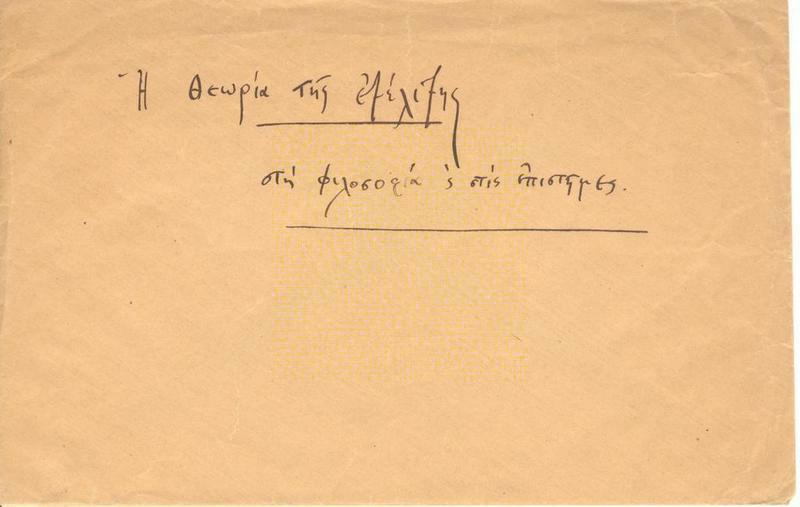 Ἡ θεωρία τῆς ἐξέλιξης
στή φιλοσοφία ϗ στίς ἐπιστῆμες.